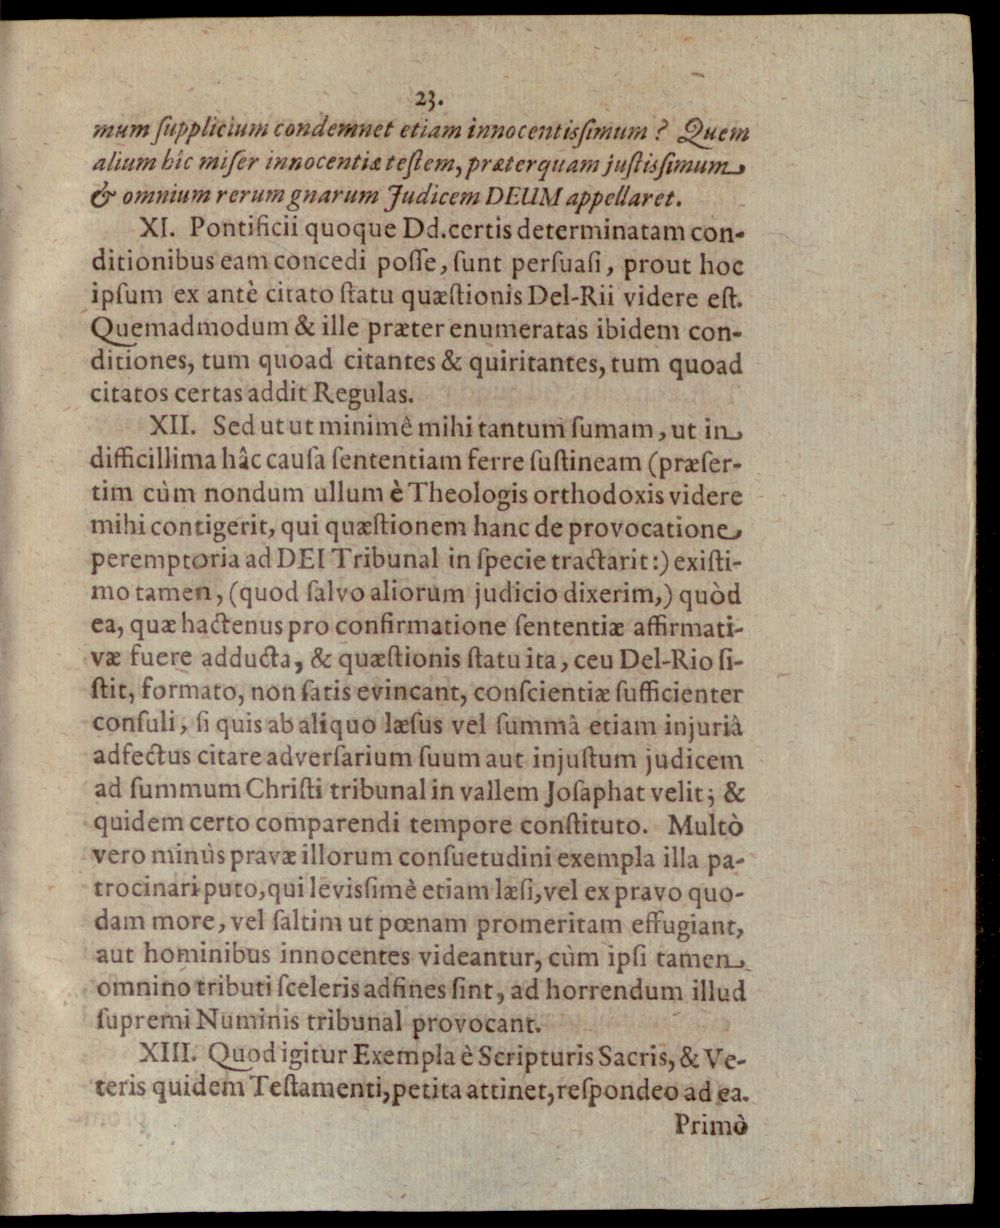 23.
mum ſupplicium condemnet etiam innocentiſsimum? Quem
alium hîc miſer innocentiæ teſtem, præterquam juſtiſsimum
& omnium rerum gnarum Judicem DEUM appellaret.
XI. Pontificii quoque Dd. certis determinatam con-
ditionibus eam concedi poſſe, ſunt perſuaſi, prout hoc
ipſum ex antè citato ſtatu quæſtionis Del-Rii videre eſt.
Quemadmodum & ille præter enumeratas ibidem con-
ditiones, tum quoad citantes & quiritantes, tum quoad
citatos certas addit Regulas.
XII. Sed ut ut minimê mihi tantum ſumam, ut in
difficillima hâc cauſa ſententiam ferre ſuſtineam (præſer-
tim cùm nondum ullum è Theologis orthodoxis videre
mihi contigerit, qui quæſtionem hanc de provocatione
peremptoria ad DEI Tribunal in ſpecie tractarit:) exiſti-
mo tamen, (quod ſalvo aliorum judicio dixerim,) quòd
ea, quæ hactenus pro confirmatione ſententiæ affirmati-
væ fuere adducta, & quæſtionis ſtatu ita, ceu Del-Rio ſi-
ſtit, formato, non ſatis evincant, conſcientiæ ſufficienter
conſuli, ſi quis ab aliquo læſus vel ſummâ etiam injuriâ
adfectus citare adverſarium ſuum aut injuſtum judicem
ad ſummum Chriſti tribunal in vallem Joſaphat velit; &
quidem certo comparendi tempore conſtituto. Multò
vero minùs pravæ illorum conſuetudini exempla illa pa-
trocinari puto, qui leviſsimè etiam læſi, vel ex pravo quo-
dam more, vel ſaltim ut pœnam promeritam effugiant,
aut hominibus innocentes videantur, cùm ipſi tamen
omnino tributi ſceleris adfines ſint, ad horrendum illud
ſupremi Numinis tribunal provocant.
XIII. Quod igitur Exempla è Scripturis Sacris, & Ve-
teris quidem Teſtamenti, petita attinet, reſpondeo ad ea.
Primò